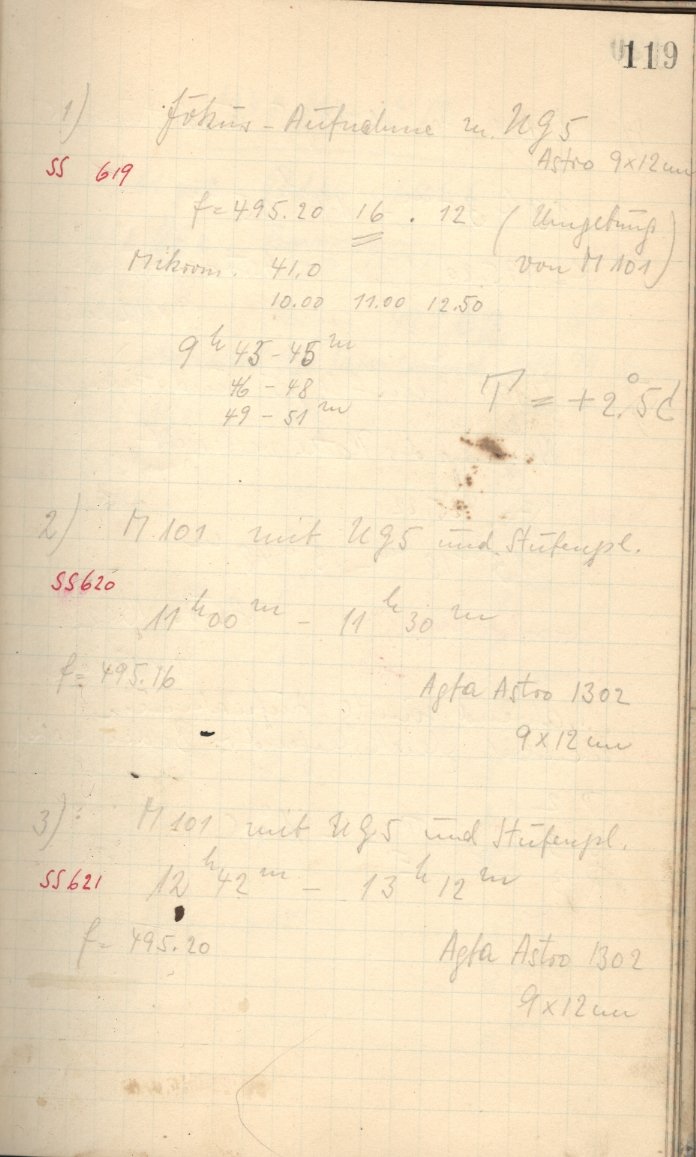 119
1) Fokus-Aufnahme m. UG5
Astro 9x12cm
SS 619
f=495.20 16 . 12 (Umgebung
von M 101)
Mikrom. 41.0
10.00 11.00 12.50
9h 43-45m
46-48
49-51m
T = +2.°5C
2) M 101 mit UG5 und Stufenpl.
SS620
11h00m - 11h30m
f= 495.16
Agfa Astro 1302
9x12cm
3) M 101 mit UG5 und Stufenpl.
SS621
12h42m - 13h12m
f= 495.20
Agfa Astro 1302
9x12cm